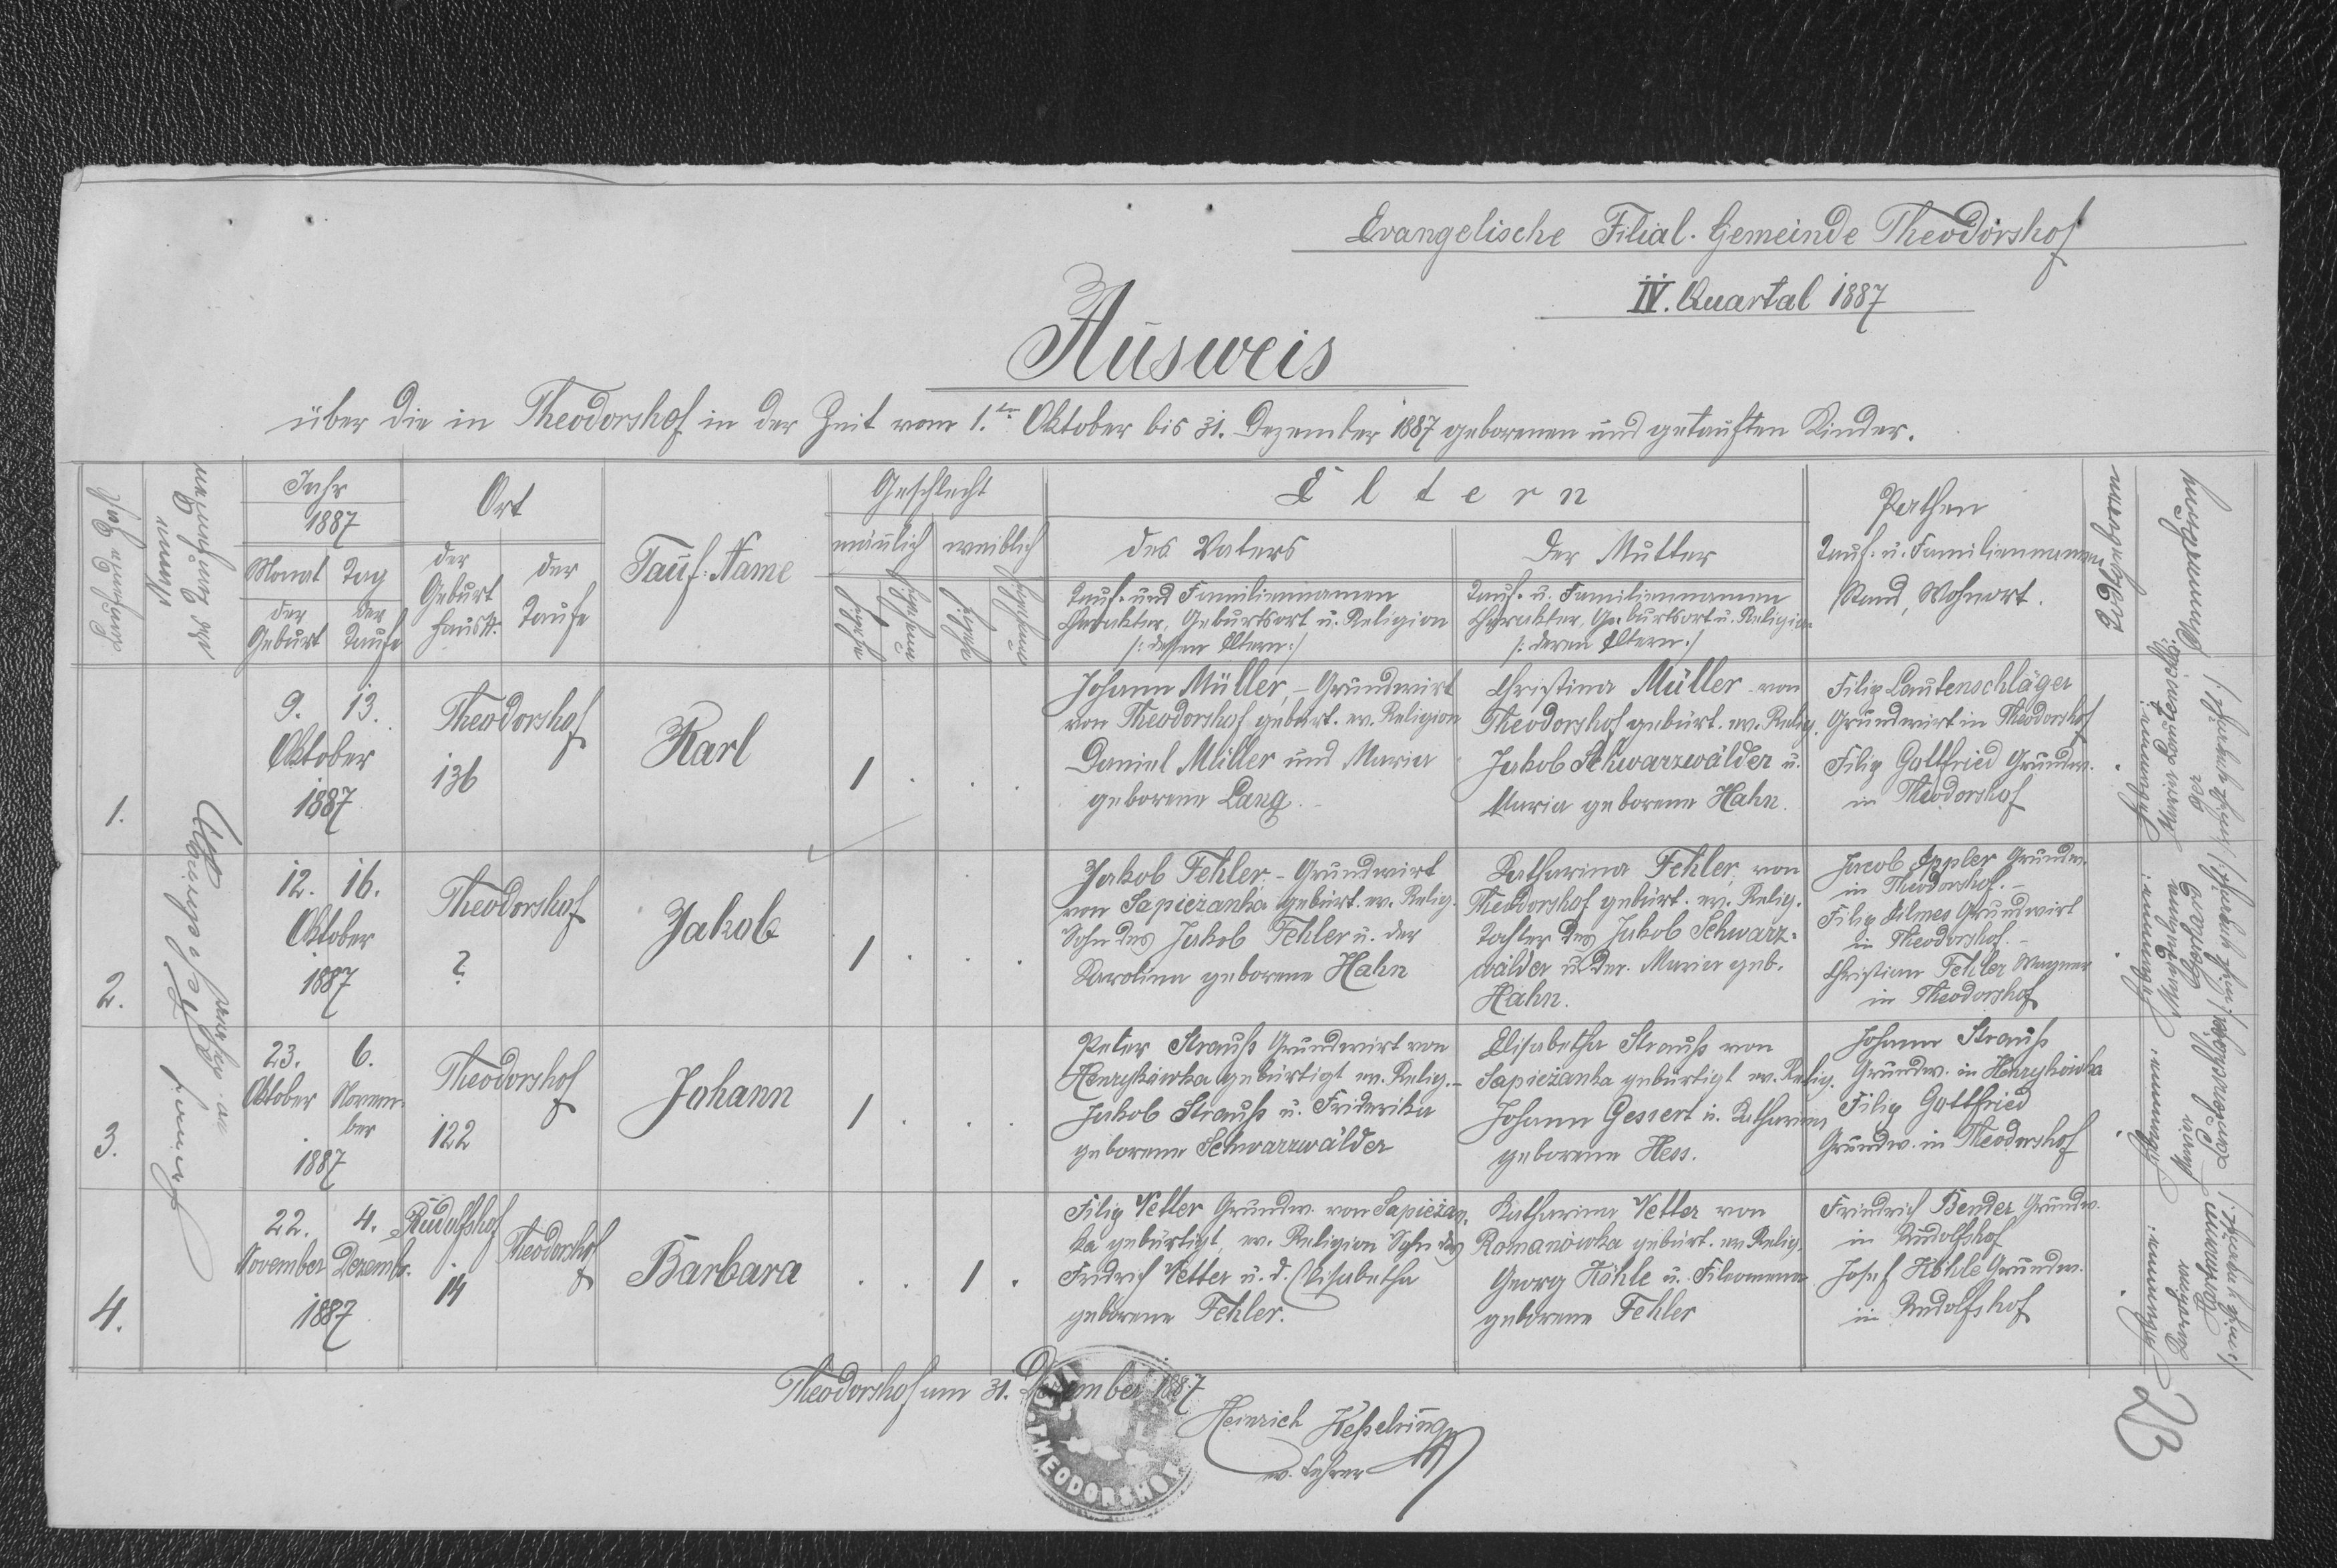 Evangelische Filial. Gemeinde Theodorshof
IV. Quartal 1887
Ausweis
über die in Theodorshof in der Zeit vom 1.ten Oktober bis 31. Dezember 1887 geborenen und getauften Kinder.
Jahr
1887
Monat Tag
der Geburt
der Taufe
Ort
der Geburt Haus№
der Taufe
Tauf-Name
Geschlecht
mänlich weiblich
Eltern
des Vaters
Tauf- und Familiennamen
Charakter, Geburtsort u. Religion
/: dessen Eltern :/
Der Mutter
Tauf- u. Familiennamen
Charakter, Geburtsort u. Religion
/: deren Eltern :/
Pathen
Tauf- u. Familiennamen,
Stand, Wohnort.
Hebammen
Anmerkung
1.
9. 13.
Oktober
1887
Theodorshof
136
Karl
1 . . .
Johann Müller, – Grundwirt
von Theodorshof gebürt. ev. Religion
Daniel Müller und Maria
geborene Lang. –
Christina Müller von
Theodorshof gebürt. ev. Relig.
Jakob Schwarzwälder u.
Maria geborene Hahn.
Filip Lautenschläger
Grundwirt in Theodorshof
Filip Gottfried Grundw.
in Theodorshof
2.
12. 16.
Oktober
1887
Theodorshof
?
Jakob
1 . . .
Jakob Fehler, – Grundwirt
von Sapiezanka gebürt. ev. Relig.
Sohn des Jakob Fehler u. der
Karolina geborene Hahn
Katharina Fehler, von
Theodorshof gebürt. ev. Relig.
Tochter des Jakob Schwarz-
wälder u. der Maria geb.
Hahn.
Jacob Appler Grundw.
in Theodorshof. –
Filip Grundwirt
in Theodorshof. –
Christian Fehler Wagner
in Theodorshof
3.
23. 6.
Oktober Novem-
ber
1887
Theodorshof
122
Johann
1 . . .
Peter Strauß Grundwirt von
Henrykówka gebürtigt ev. Relig. –
Jakob Strauß u. Friderika
geborene Schwarzwälder
Elisabetha Strauß von
Sapieżanka gebürtigt ev. Relig.
Johann Gessert u. Katharina
geborene Hess.
Johann Strauß
Grundw. in Henrykówka
Filip Gottfried
Grundw. in Theodorshof
4.
22. 4.
November Dezembr.
1887
Rudolfshof
14
Theodorshof
Barbara
. . 1 .
Filip Vetter Grundw. von Sapieżan-
ka gebürtigt, ev. Religion Sohn des
Fridrich Vetter u. d. Elisabetha
geborene Fehler.
Katharina Vetter von
Romanówka gebürt. ev. Relig.
Georg Köhle u. Filomena
geborene Fehler
Friedrich Bender Grundw.
in Rudolfshof
Josef Köhle Grundw.
in Rudolfshof
Theodorshof am 31. Dezember 1887
Heinrich Keßelring
ev. Lehrer
THEODORSHOF